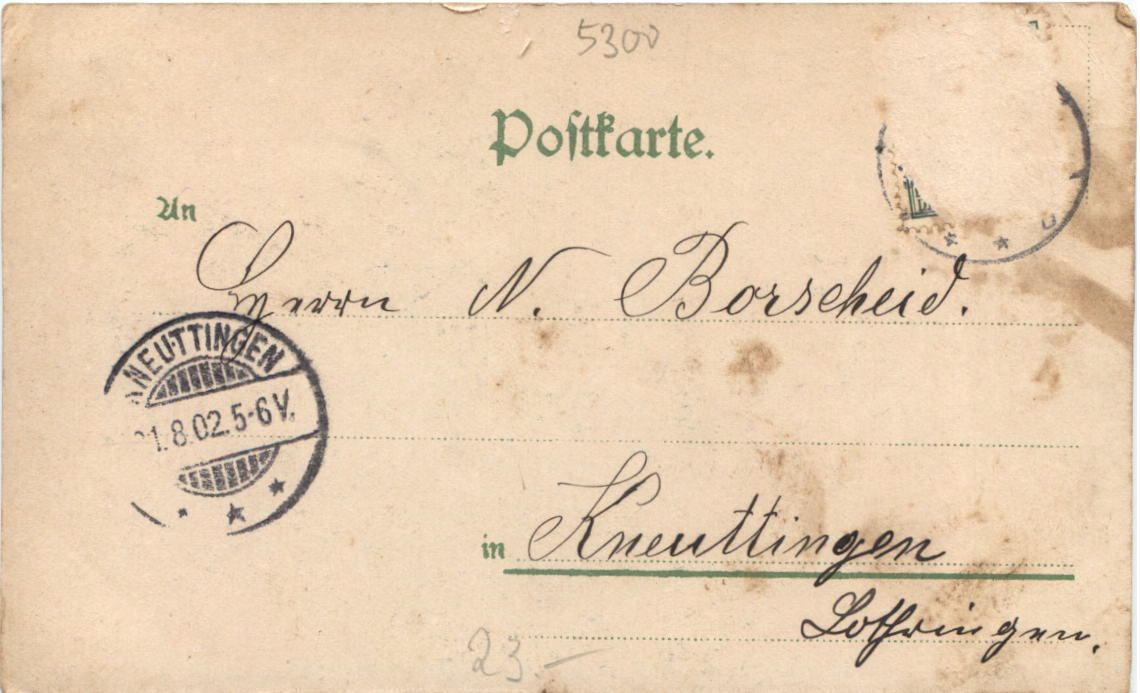 5300
Postkarte.
An
Herrn N. Borscheid.
KNEUTTINGEN
1.8.02.5-6V.
in Kneuttingen
Lothringen.
23.-